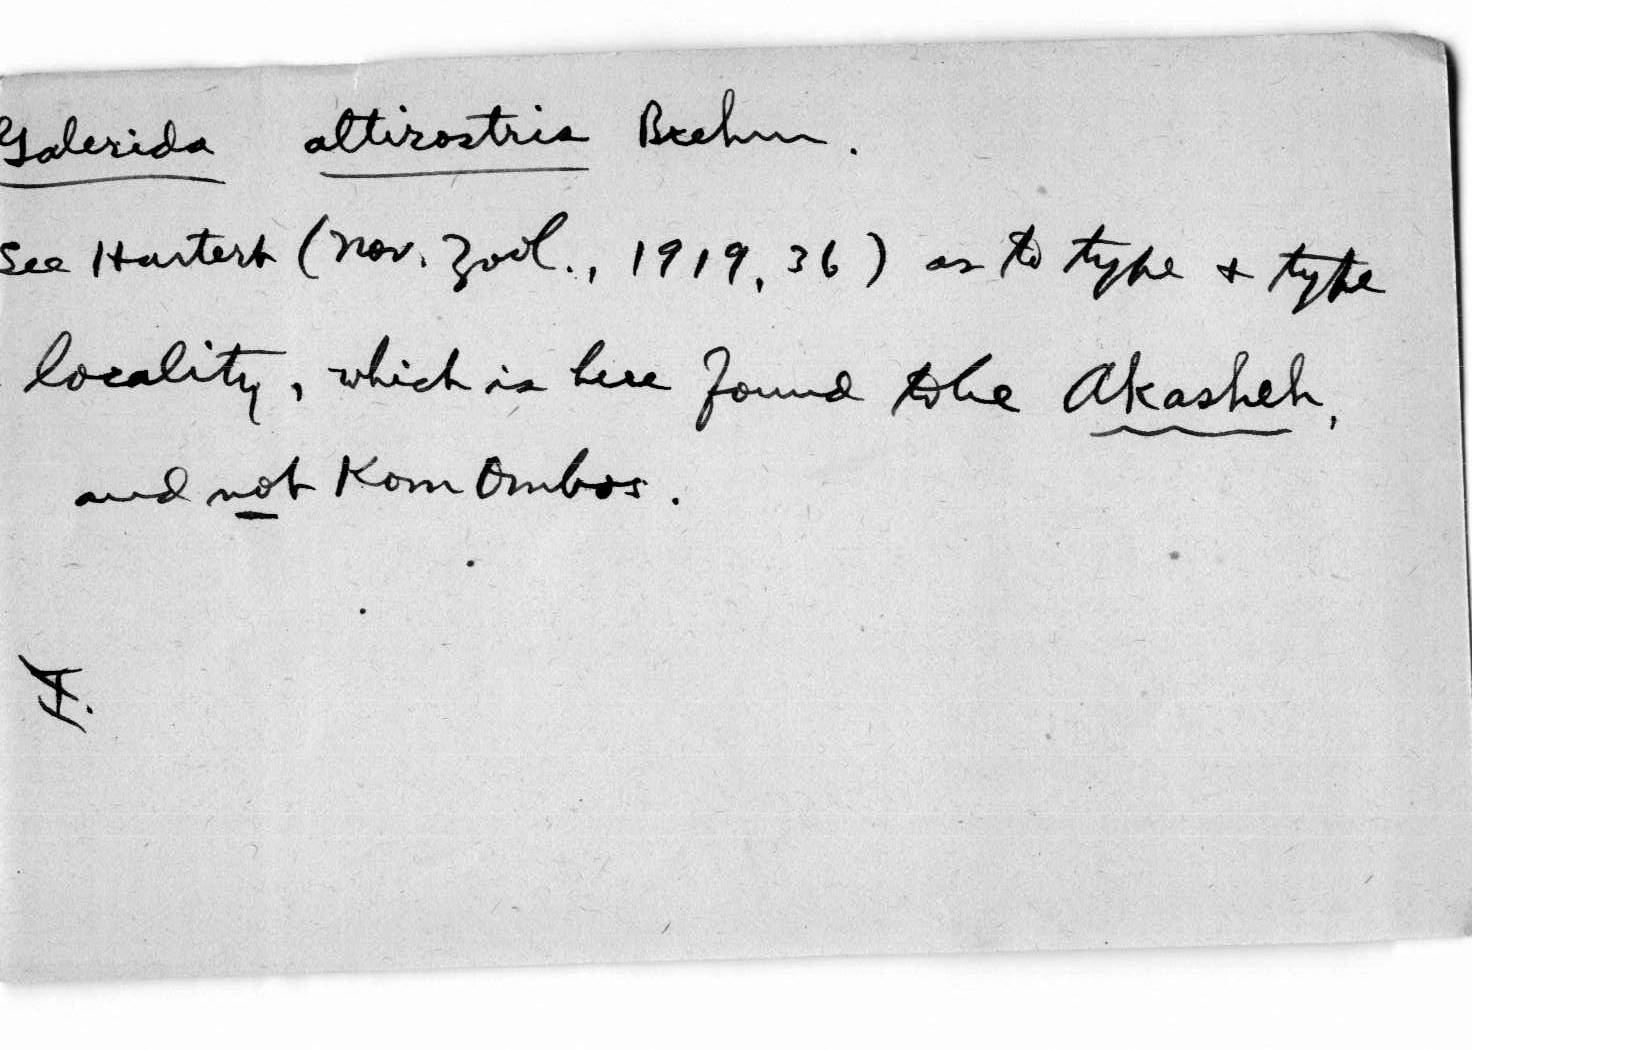 Galerida altirostris Brehm.
See Hartert (Nov. Zool., 1919, 36) as to type & type
locality, which is here found to be Akasheh,
and not Kom Ombos.